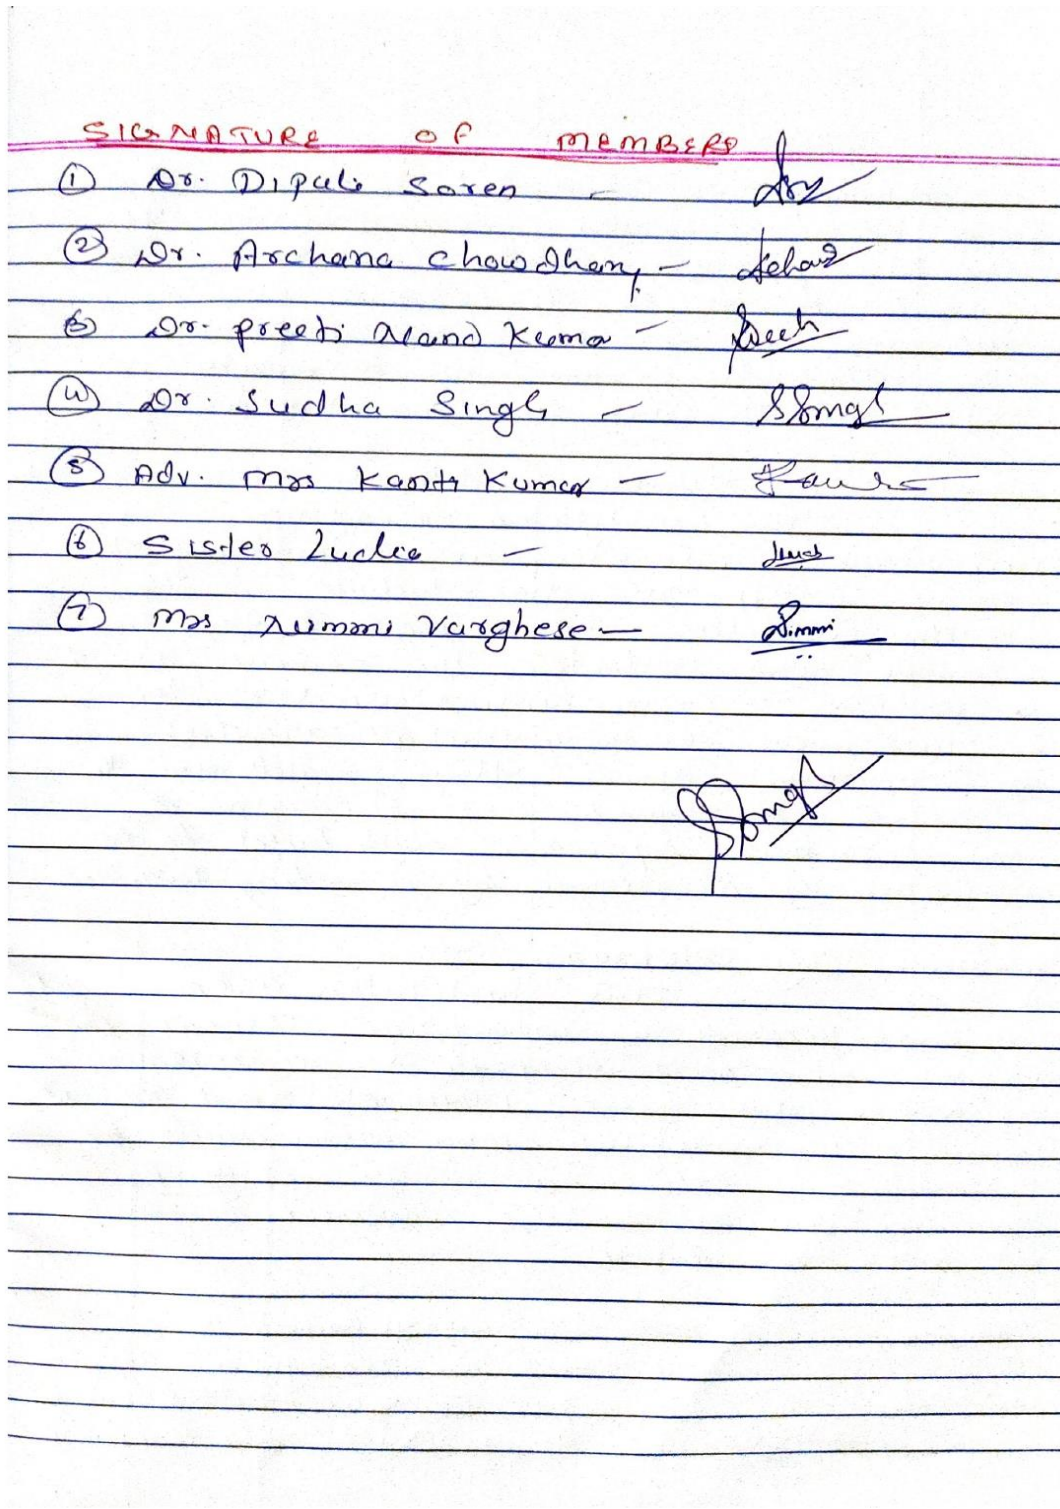 SIGNATURE OF MEMBERS
① Dr. Dipali Soren -
② Dr. Archana Chowdhary -
③ Dr. Preeti Anand Kuma -
④ Dr. Sudha Singh - SSingh
⑤ Adv. Mrs Kanti Kumar -
⑥ Sister Ludia -
⑦ Mrs Varghese - Simmi
SSingh